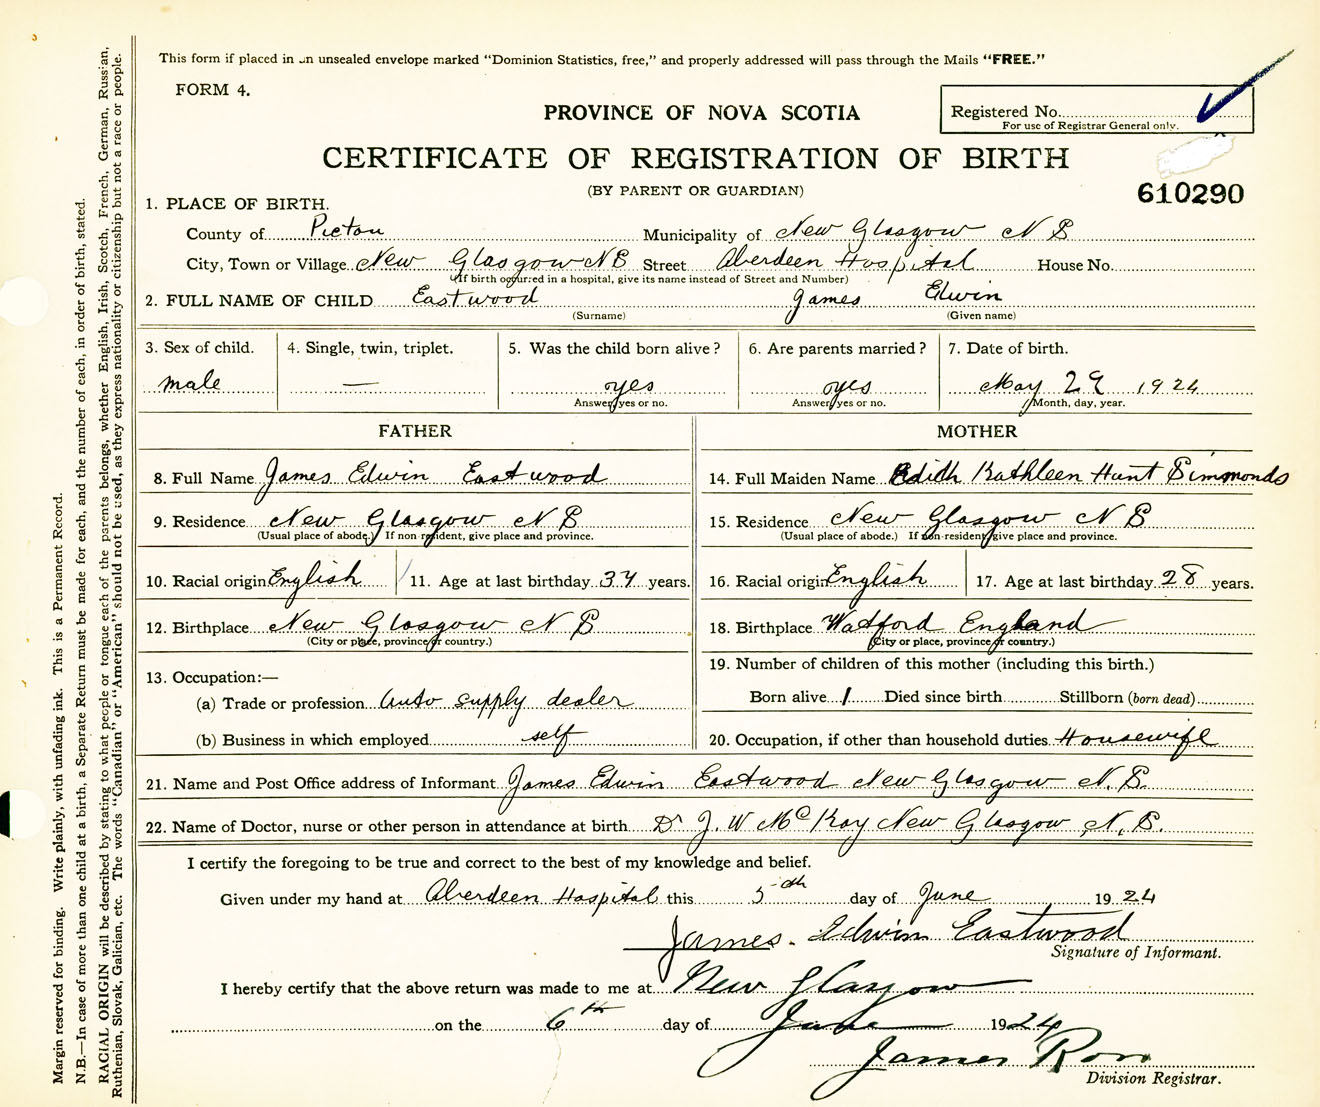 This form if placed in an unsealed envelope marked "Dominion Statistics, free," and properly addressed will pass through the Mails "FREE."
FORM 4.
PROVINCE OF NOVA SCOTIA
Registered No.
For use of Registrar General only.
CERTIFICATE OF REGISTRATION OF BIRTH
(BY PARENT OR GUARDIAN)
610290
1. PLACE OF BIRTH.
County of Pictou Municipality of New Glasgow N S
City, Town or Village New Glasgow N S Street Aberdeen Hospital House No.
(If birth occurred in a hospital, give its name instead of Street and Number)
2. FULL NAME OF CHILD Eastwood James Edwin
(Surname) (Given name)
3. Sex of child. 4. Single, twin, triplet. 5. Was the child born alive? 6. Are parents married? 7. Date of birth.
male — yes yes May 29 1924
Answer yes or no. Answer yes or no. Month, day, year.
FATHER
8. Full Name James Edwin Eastwood
9. Residence New Glasgow N S
(Usual place of abode.) If non-resident, give place and province.
10. Racial origin English 11. Age at last birthday 34 years.
12. Birthplace New Glasgow N S
(City or place, province or country.)
13. Occupation:—
(a) Trade or profession Auto supply dealer
(b) Business in which employed self
MOTHER
14. Full Maiden Name Edith Kathleen Hunt Simmonds
15. Residence New Glasgow N S
(Usual place of abode.) If non-resident, give place and province.
16. Racial origin English 17. Age at last birthday 28 years.
18. Birthplace Watford England
(City or place, province or country.)
19. Number of children of this mother (including this birth.)
Born alive 1 Died since birth Stillborn (born dead)
20. Occupation, if other than household duties Housewife
21. Name and Post Office address of Informant James Edwin Eastwood New Glasgow N. S.
22. Name of Doctor, nurse or other person in attendance at birth Dr J. W McKay New Glasgow, N. S.
I certify the foregoing to be true and correct to the best of my knowledge and belief.
Given under my hand at Aberdeen Hospital this 5th day of June 1924
James Edwin Eastwood
Signature of Informant.
I hereby certify that the above return was made to me at New Glasgow
on the 6th day of June 1924
James Ross
Division Registrar.
Margin reserved for binding. Write plainly, with unfading ink. This is a Permanent Record.
N.B.—In case of more than one child at a birth, a Separate Return must be made for each, and the number of each, in order of birth, stated.
RACIAL ORIGIN will be described by stating to what people or tongue each of the parents belongs, whether English, Irish, Scotch, French, German, Russian,
Ruthenian, Slovak, Galician, etc. The words "Canadian" or "American" should not be used, as they express nationality or citizenship but not a race or people.